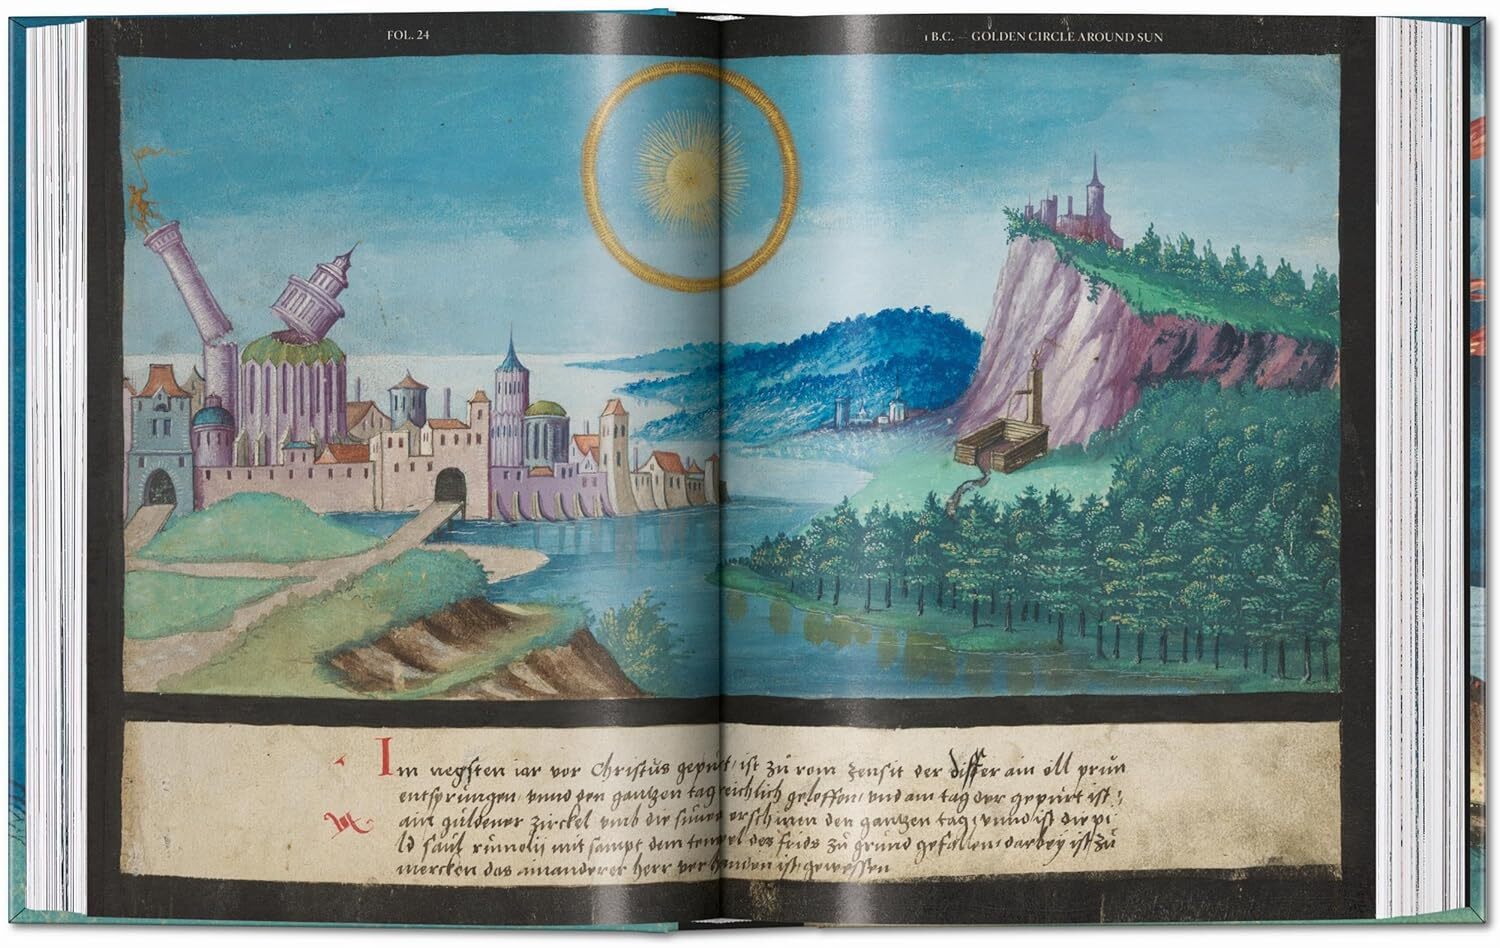 FOL. 24
1 B.C. — GOLDEN CIRCLE AROUND SUN
Im negsten iar vor Christus gepurt ist zu rom Jensit der differ ain öll prun
entsprungen vnnd den gantzen tag reichlich geloffen vnd am tag der gepurt ist
ain guldener zirckel vmb die sunne erschinen den gantzen tag vnnd ist die pi
ld saul rumolij mit sampt dem tempel des frids zu grund gefallen darbey ist zu
mercken das ain anderer herr vorhanden ist gewessen